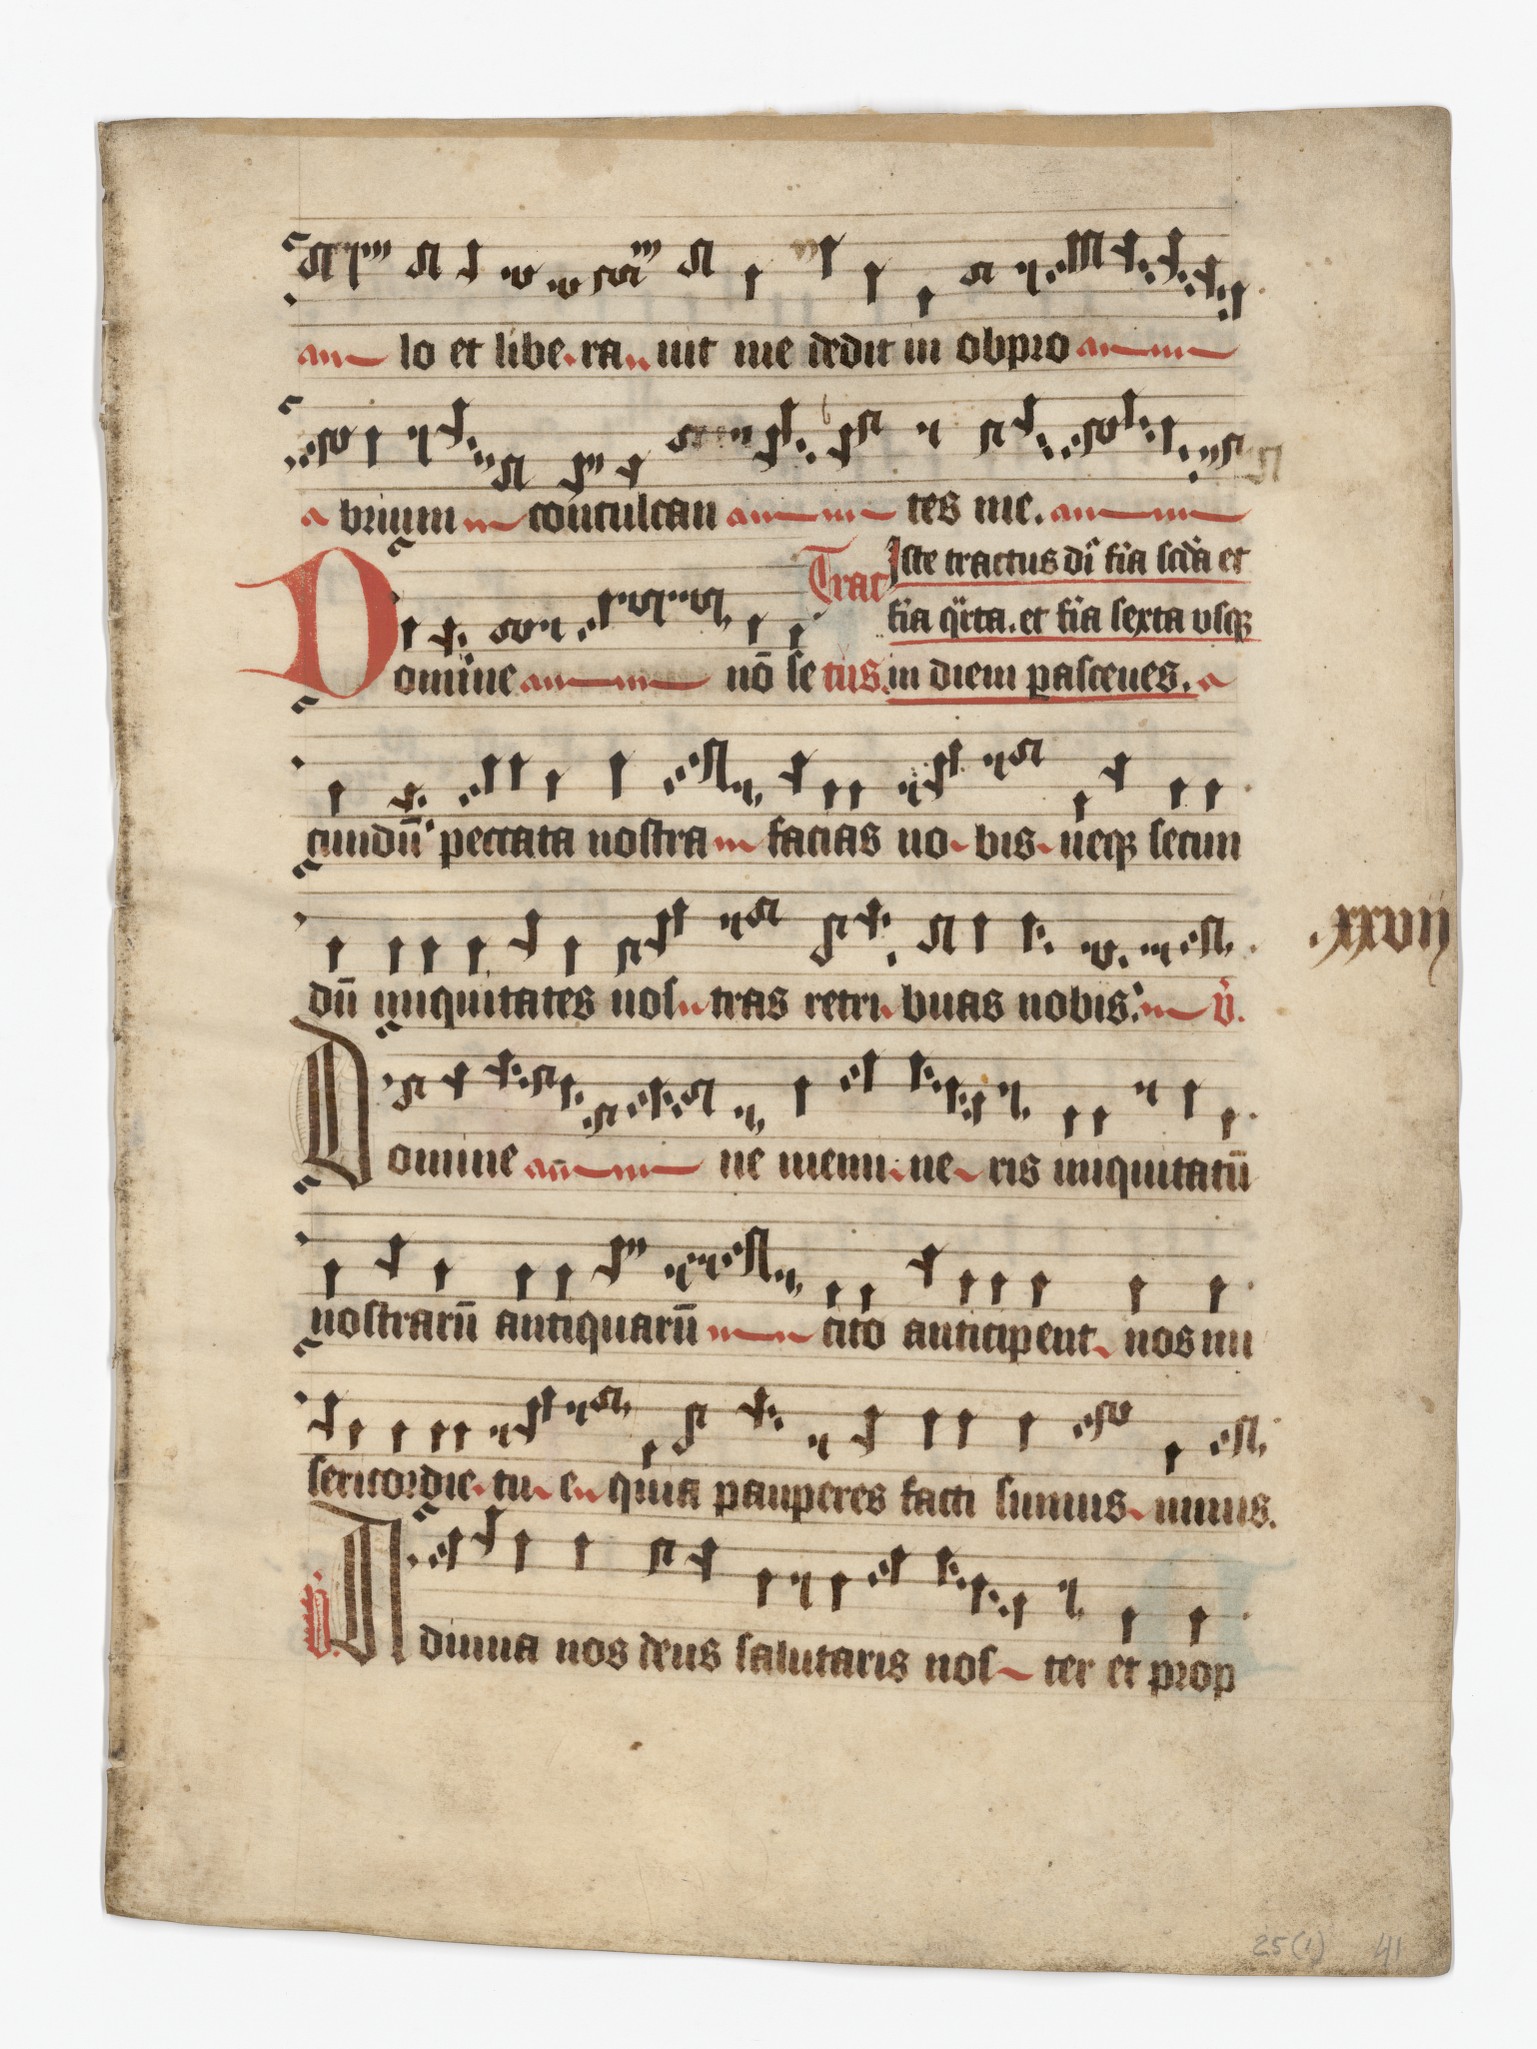 lo et libe ra uit me dedit in obpro
brium conculcan tes me.
Tractus. Iste tractus dr̄ fīa scd̄a et
fīa q̄rta. et fīa sexta vsqꝫ
Domine nō se in diem pasceues.
cundū peccata nostra facias no bis neqꝫ secun
dū iniquitates nos tras retri buas nobis: v̄.
Domine ne memi ne ris iniquitatū
nostrarū antiquarū cito anticipent nos mi
sericordie tu e quia pauperes facti sumus nimis.
v̄. Adiuua nos deus salutaris nos ter et prop
.xxvij
25(1) 41